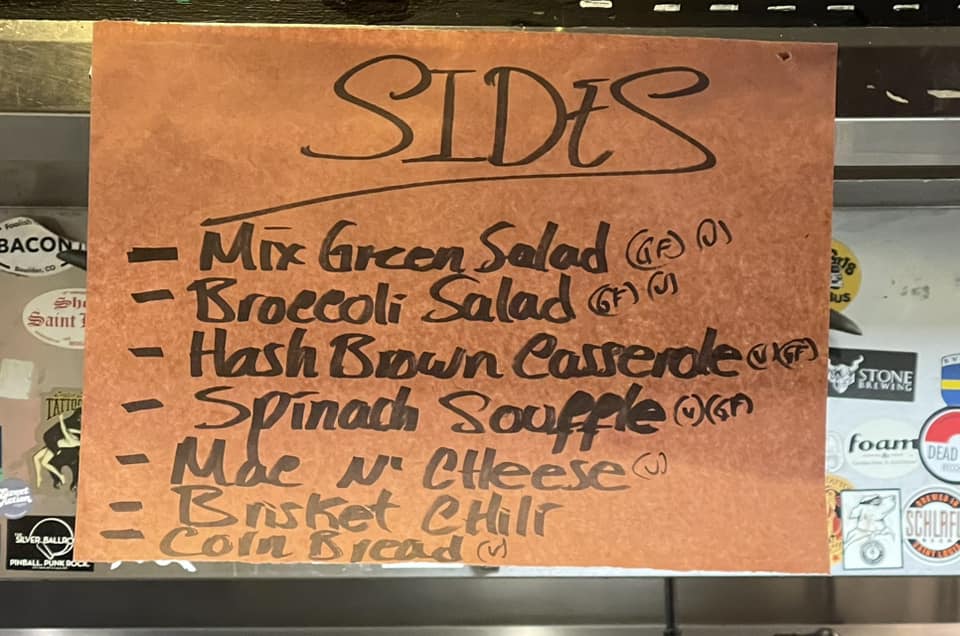 SIDES
- Mix Green Salad (GF) (V)
- Broccoli Salad (GF) (V)
- Hash Brown Casserole (V) (GF)
- Spinach Souffle (V) (GF)
- Mac N' Cheese (V)
- Brisket Chili
- Corn Bread (V)
BACON
Boulder, CO
Saint
TATTOO
SILVER BALLRO
PINBALL. PUNK ROCK.
STONE
BREWING
foam
DEAD
SCHLAFL